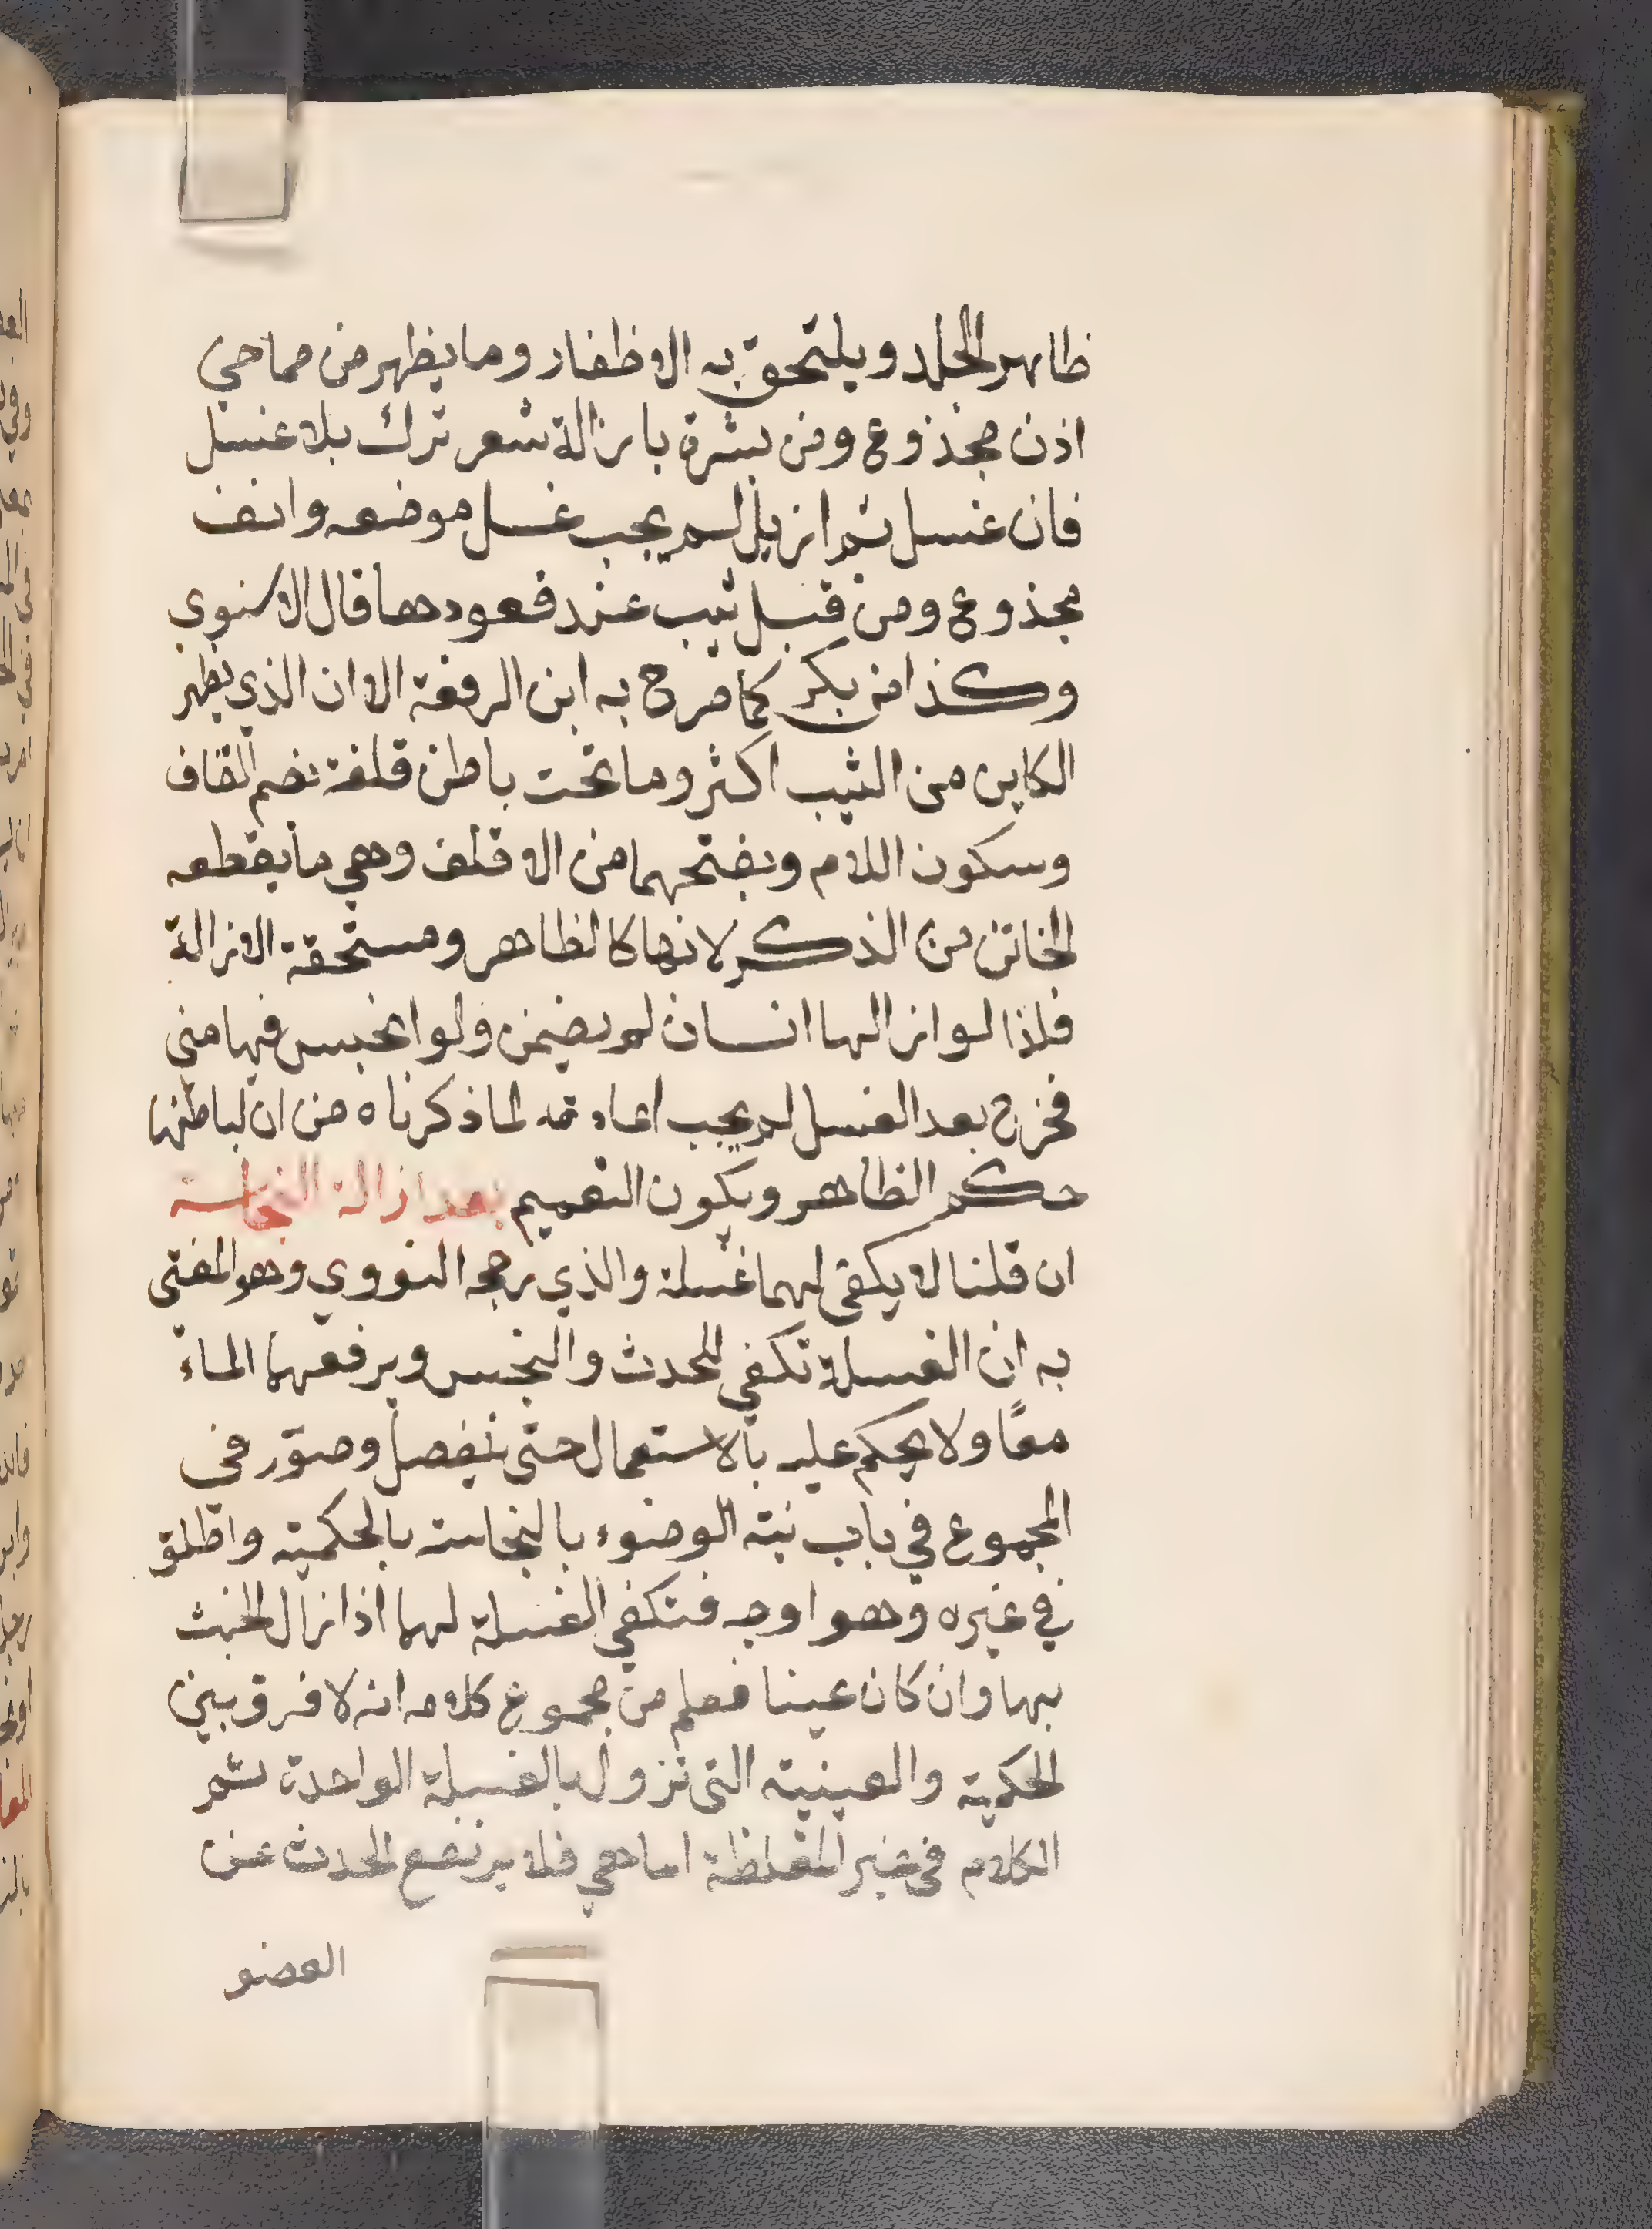 ظاهر الجلد ويلتحق به الاظفار وما يظهر من صماخي
اذن مجذوع ومن بشرة بازالة شعر ترك بلا غسل
فان غسل ثم ازيل لم يجب غسل موضعه وانف
مجذوع ومن قبل ثيب عند قعودها قال الاسنوي
وكذا من بكر كما صرح به ابن الرفعة الا ان الذي يظهر
الكاين من الثيب اكثر وما تحت باطن قلفة بضم القاف
وسكون اللام وبفتحهما من الاقلف وهي ما يقطعه
الخاتن من الذكر لانها كالظاهر ومستحقة الازالة
فلذا لو ازالها انسان لم يضمن ولو انحبس فيها مني
فخرج بعد الغسل لم يجب اعادته لما ذكرناه من ان لباطنها
حكم الظاهر ويكون التعميم بعد ازالة النجاسة
ان قلنا لا يكفي لهما غسلة والذي رجحه النووي وهو المفتى
به ان الغسلة تكفي للحدث والنجس ويرفعهما الماء
معًا ولا يحكم عليه بالاستعمال حتى ينفصل وصوّر في
المجموع في باب نية الوضوء بالنجاسة بالحكمية واطلق
في غيره وهو اوجه فتكفي الغسلة لهما اذا زال الخبث
بها وان كان عينا فعلم من مجموع كلامه انه لا فرق بين
الحكمية والعينية التي تزول بالغسلة الواحدة ثم
الكلام في غير المغلظة اما هي فلا يرتفع الحدث عن
العضو